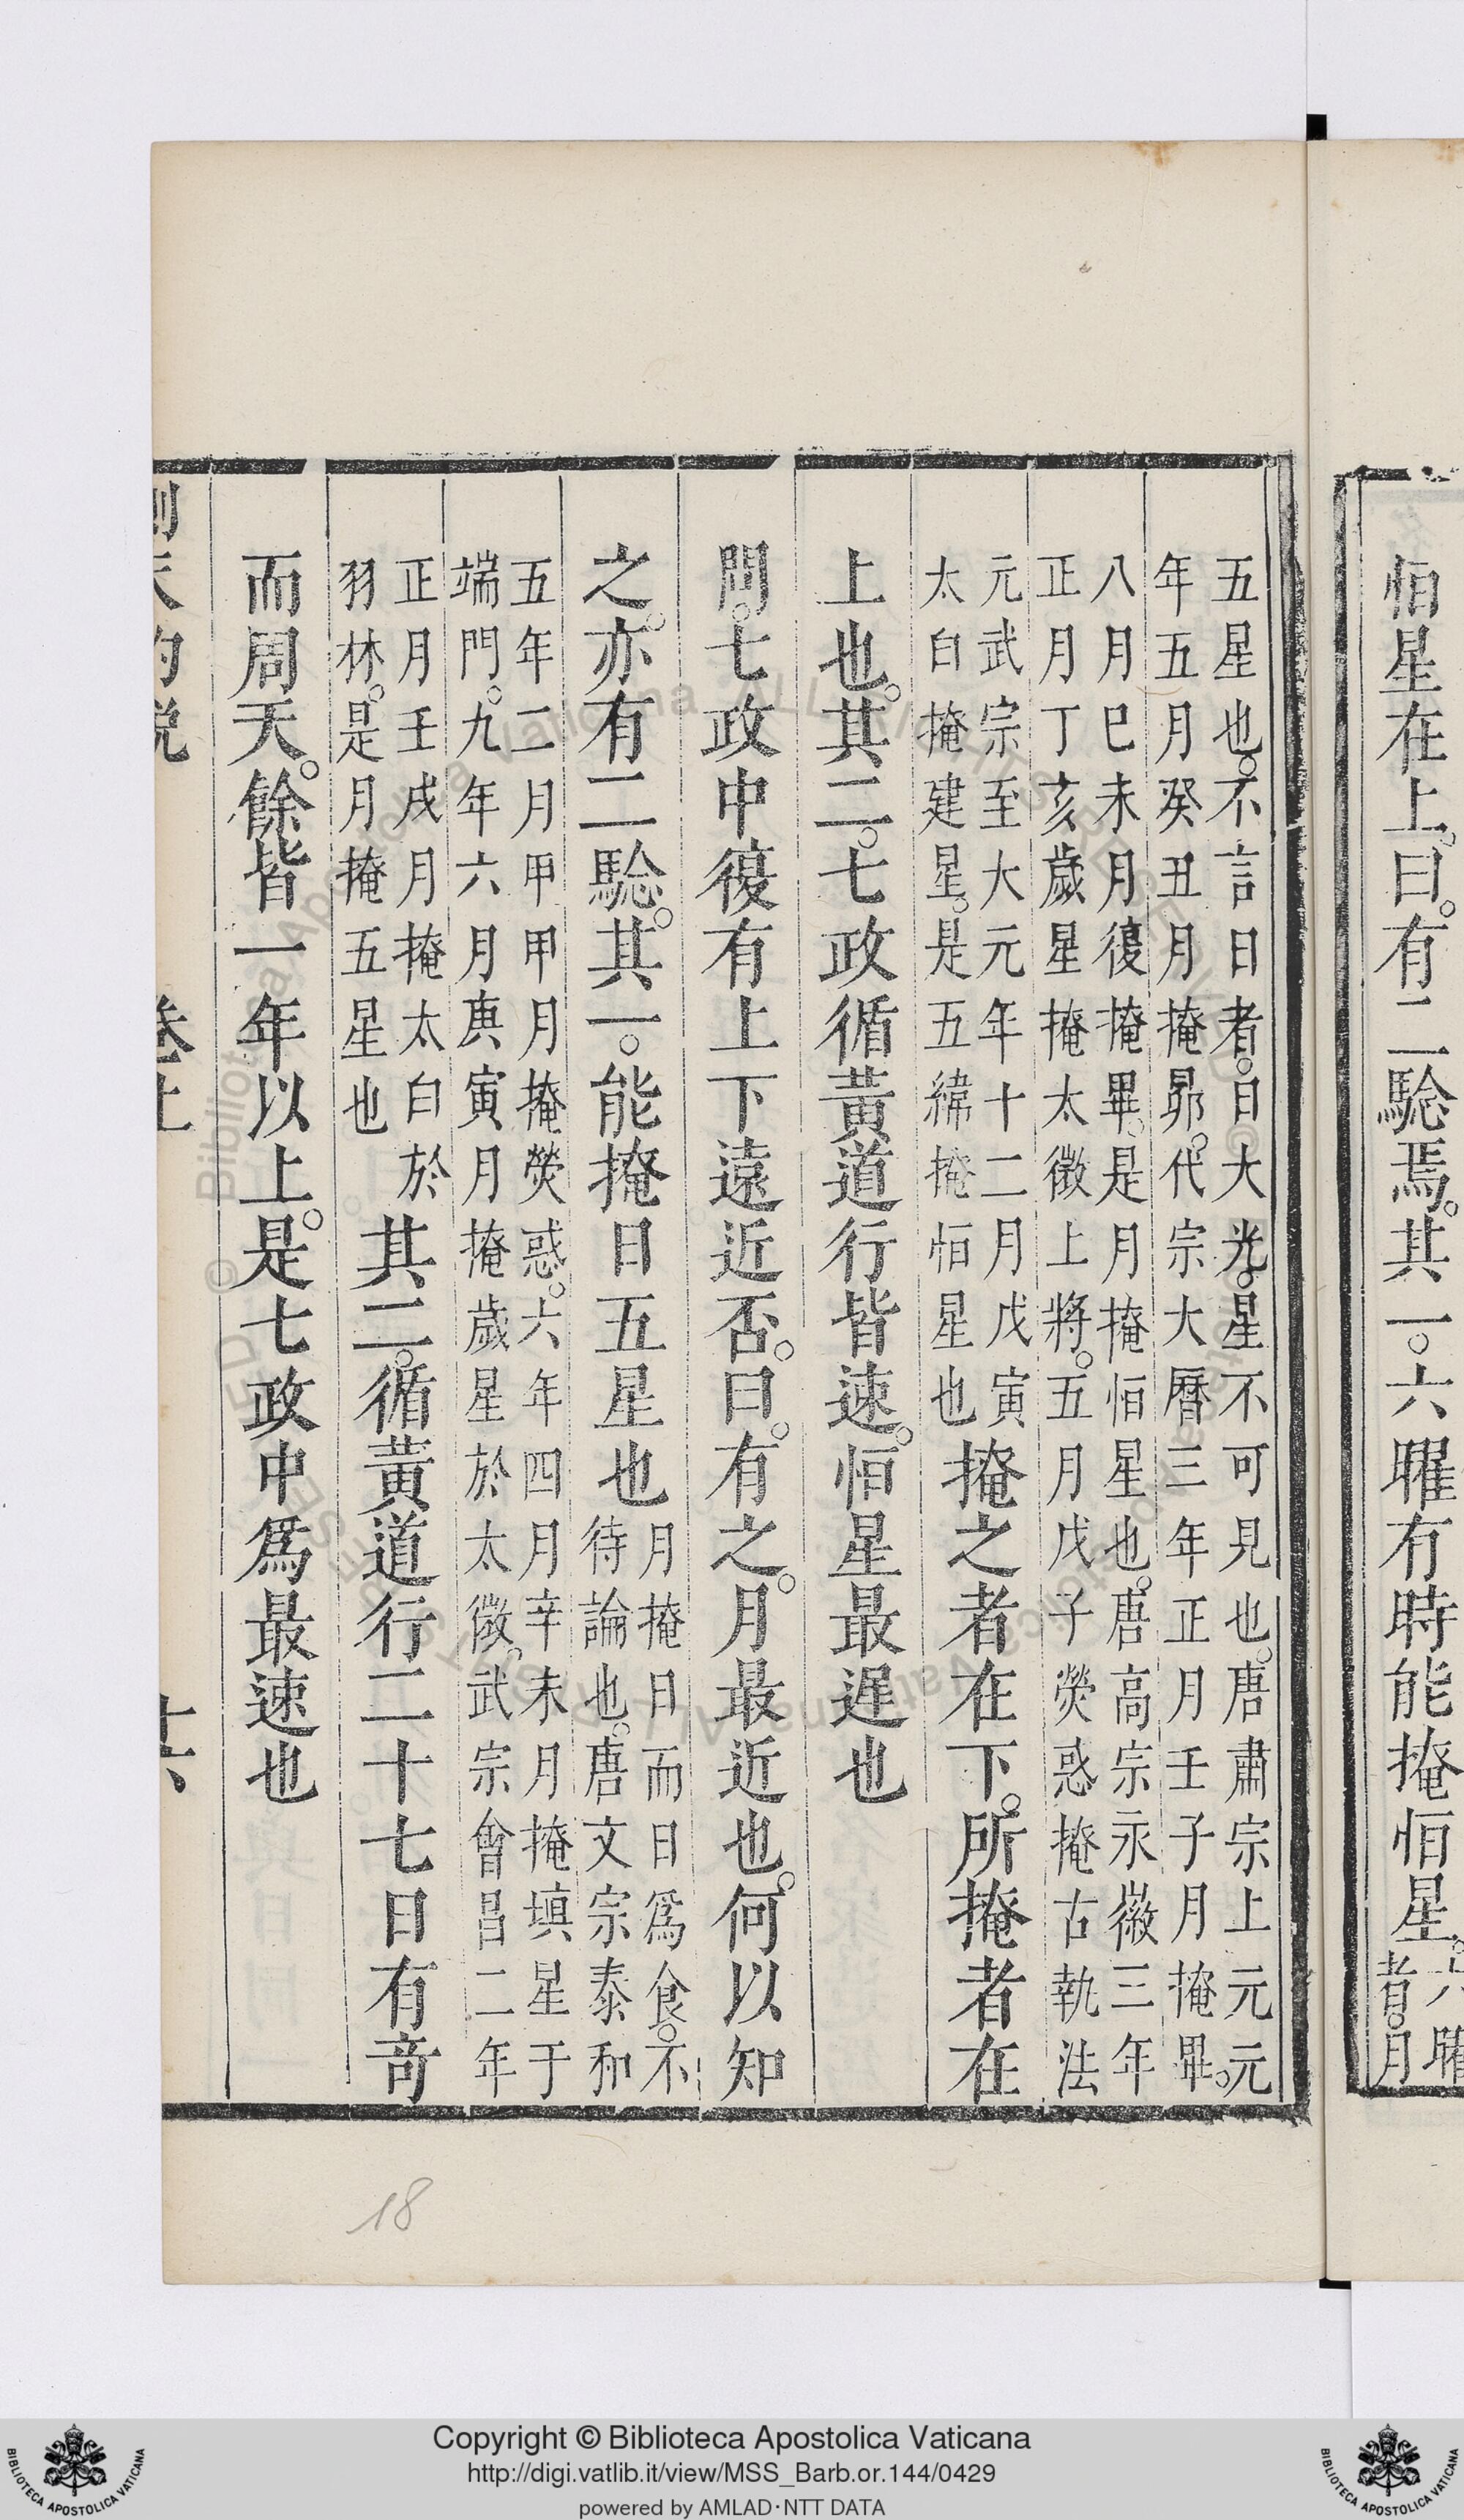 恒星在上。曰。有二騐焉。其一。六曜有時能掩恒星。六曜
者。月
五星也。不言日者。日大光。星不可見也。唐肅宗上元元
年五月癸丑月掩昴。代宗大曆三年正月壬子月掩畢。
八月己未月復掩畢。是月掩恒星也。唐高宗永徽三年
正月丁亥歲星掩太微上將。五月戊子熒惑掩古執法
元武宗至大元年十二月戊寅
太白掩建星。是五緯掩恒星也
掩之者在下。所掩者在
上也。其二。七政循黃道行皆速。恒星最遲也
問。七政中復有上下遠近否。曰。有之。月最近也。何以知
之。亦有二騐。其一。能掩日五星也
月掩日而日為食。不
待論也。唐文宗泰和
五年二月甲甲月掩熒惑。六年四月辛未月掩塡星于
端門。九年六月庚寅月掩歲星於太微。武宗會昌二年
正月壬戌月掩太白於
羽林。是月掩五星也
其二。循黃道行二十七日有奇
而周天。餘皆一年以上。是七政中爲最速也
測天約說
卷上
十六
18
Copyright © Biblioteca Apostolica Vaticana
http://digi.vatlib.it/view/MSS_Barb.or.144/0429
powered by AMLAD·NTT DATA
BIBLIOTECA APOSTOLICA VATICANA
BIBLIOTECA APOSTOLICA VATICANA